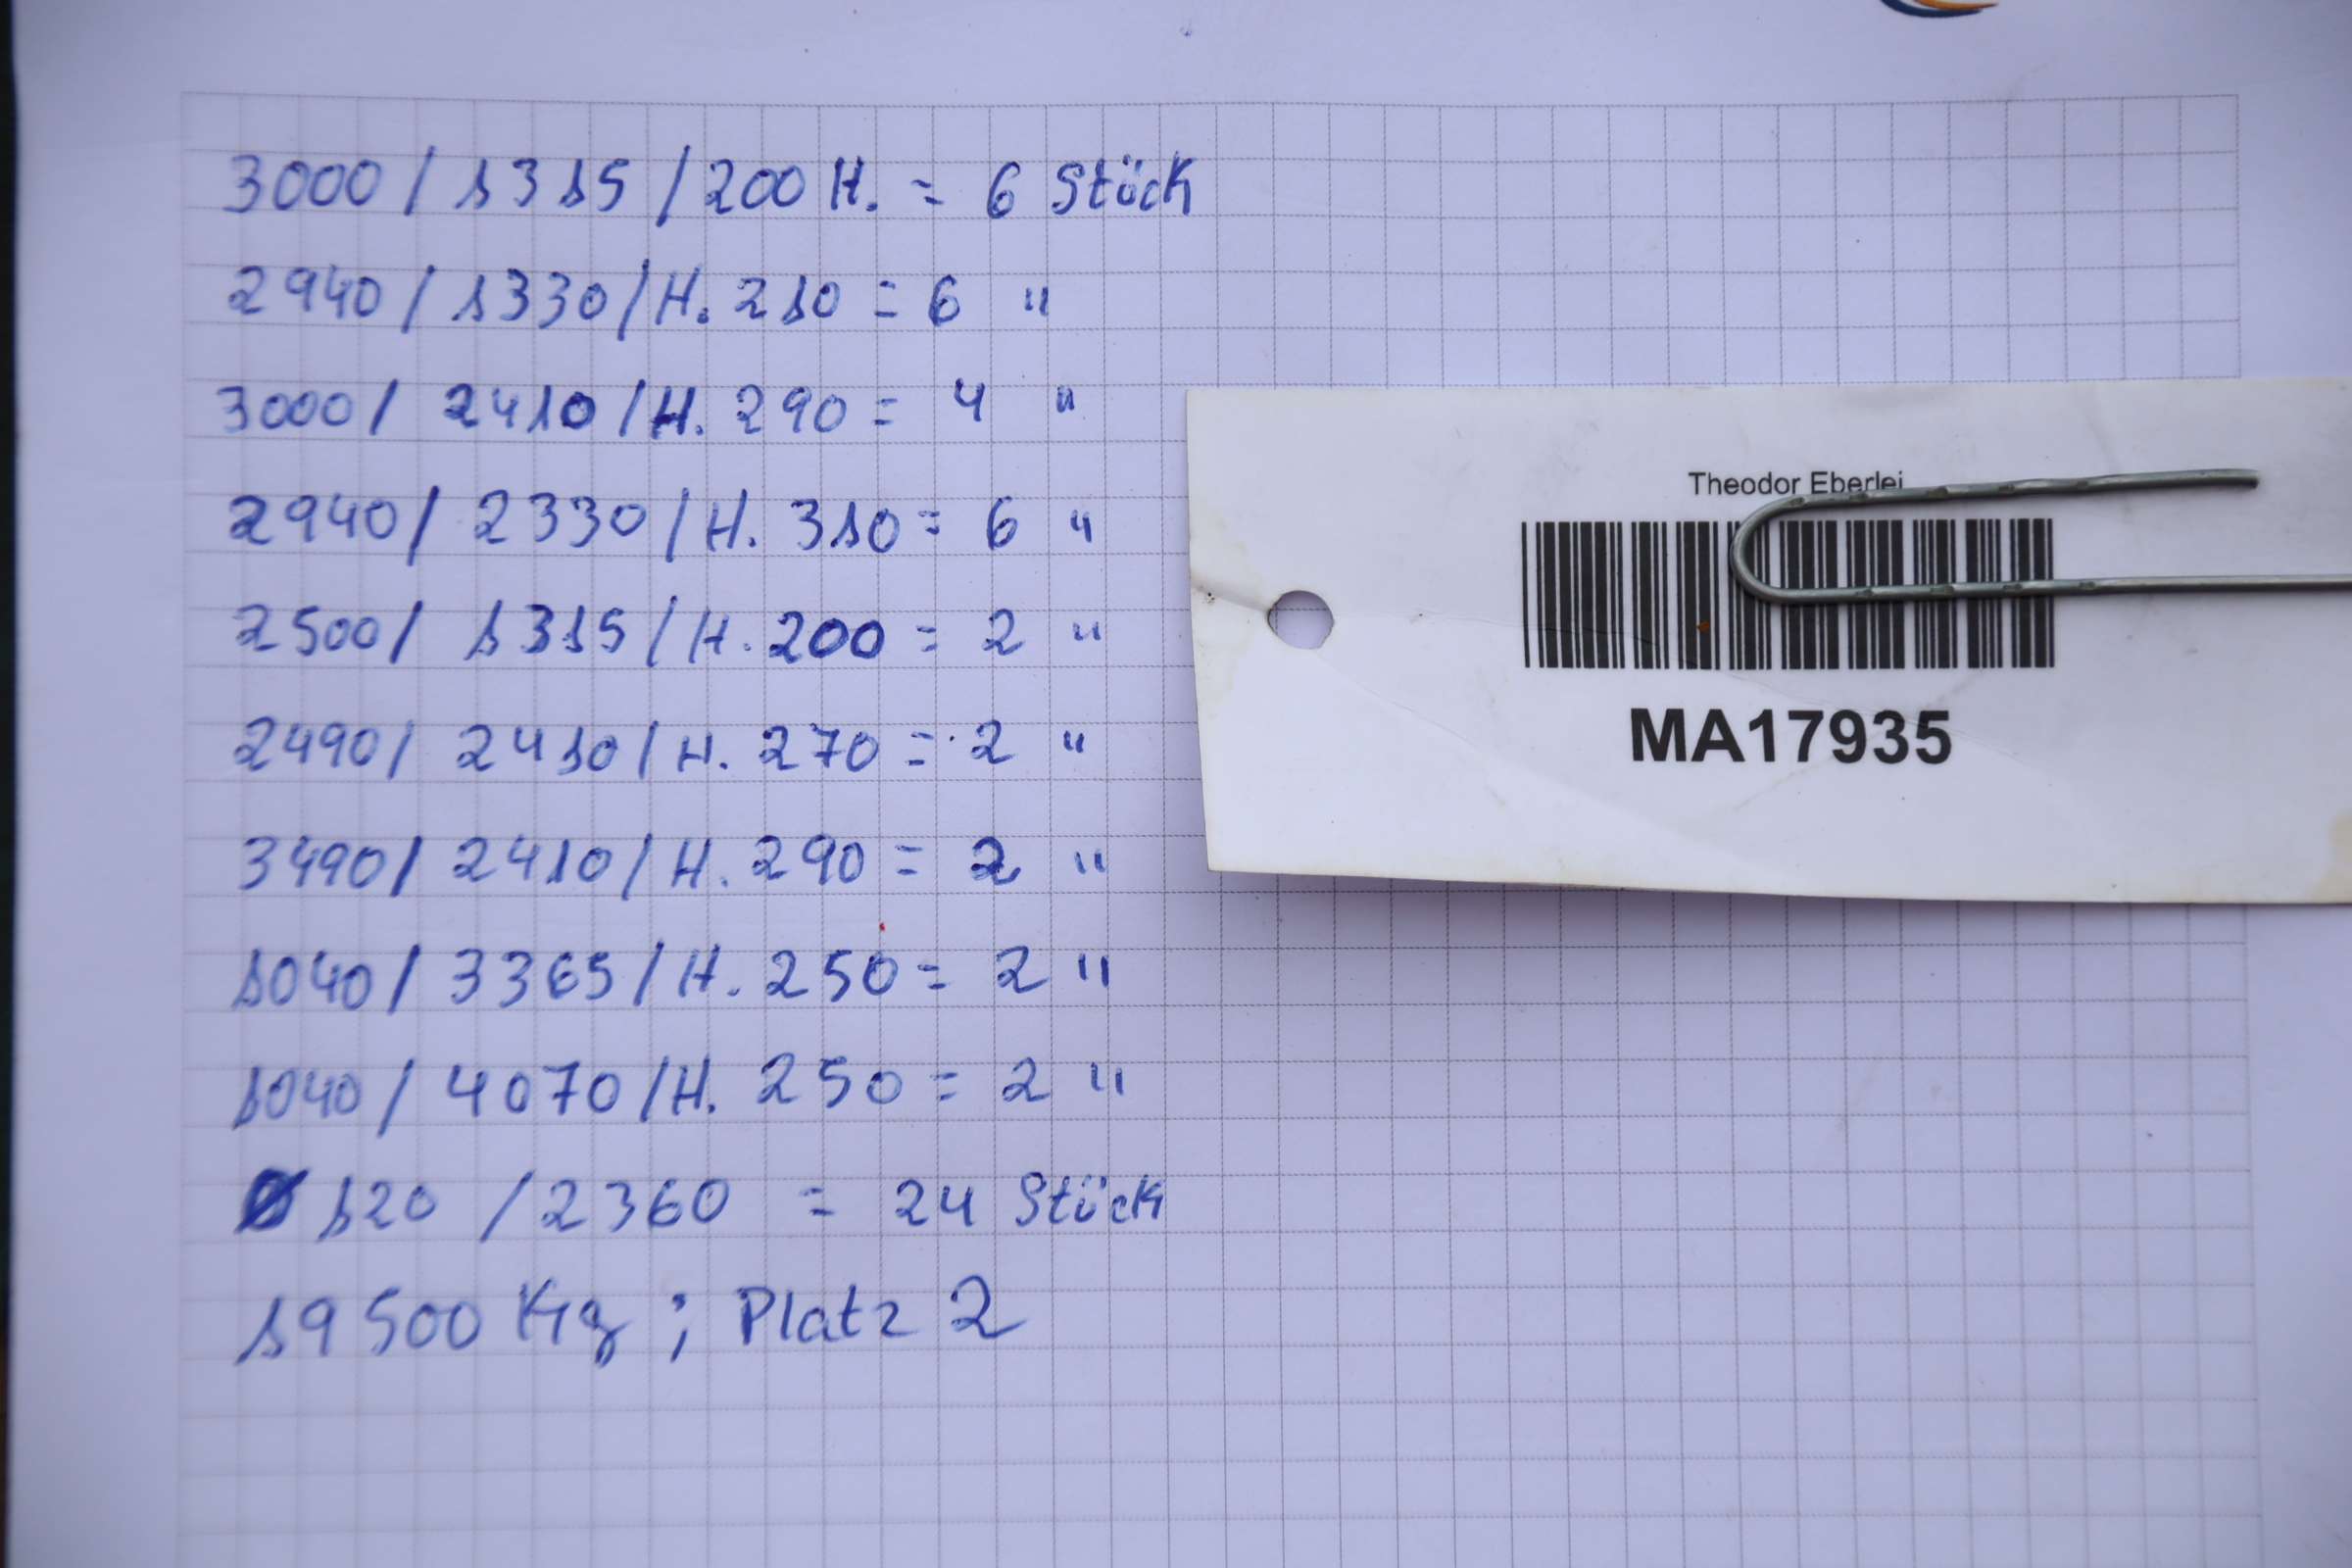 3000 / 1315 / 200 H. = 6 Stück
2940 / 1330 / H. 210 = 6 "
3000 / 2410 / H. 290 = 4 "
2940 / 2330 / H. 310 = 6 "
2500 / 1315 / H. 200 = 2 "
2490 / 2410 / H. 270 = 2 "
3490 / 2410 / H. 290 = 2 "
1040 / 3365 / H. 250 = 2 "
1040 / 4070 / H. 250 = 2 "
Ø 120 / 2360 = 24 Stück
19500 Kg ; Platz 2
Theodor Eberlei
MA17935